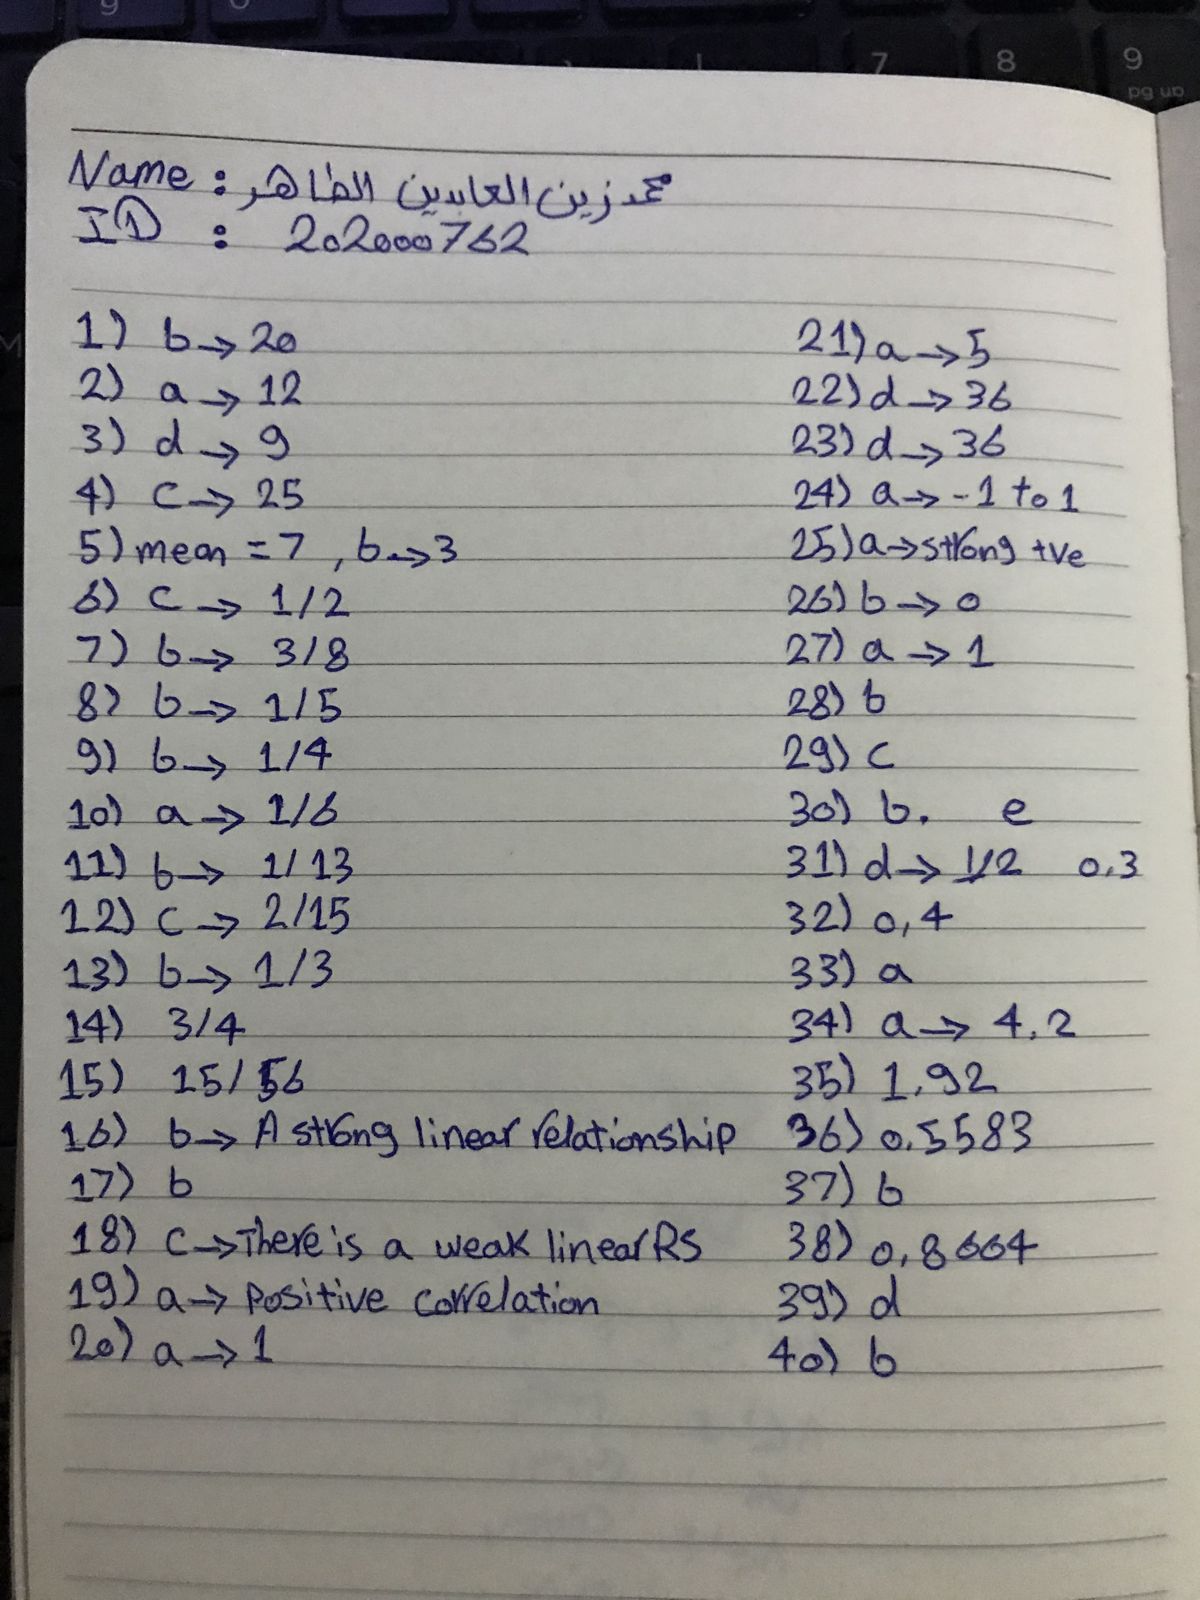 Name : محمد زين العابدين الطاهر
ID : 202000762
1) b → 20
2) a → 12
3) d → 9
4) c → 25
5) mean = 7 , b → 3
6) c → 1/2
7) b → 3/8
8) b → 1/5
9) b → 1/4
10) a → 1/6
11) b → 1/13
12) c → 2/15
13) b → 1/3
14) 3/4
15) 15/56
16) b → A strong linear relationship
17) b
18) c → There is a weak linear RS
19) a → positive correlation
20) a → 1
21) a → 5
22) d → 36
23) d → 36
24) a → -1 to 1
25) a → strong +ve
26) b → 0
27) a → 1
28) b
29) c
30) b. e
31) d → 1/2 0.3
32) 0,4
33) a
34) a → 4,2
35) 1,92
36) 0.5583
37) b
38) 0,8664
39) d
40) b
7
8
9
pg up